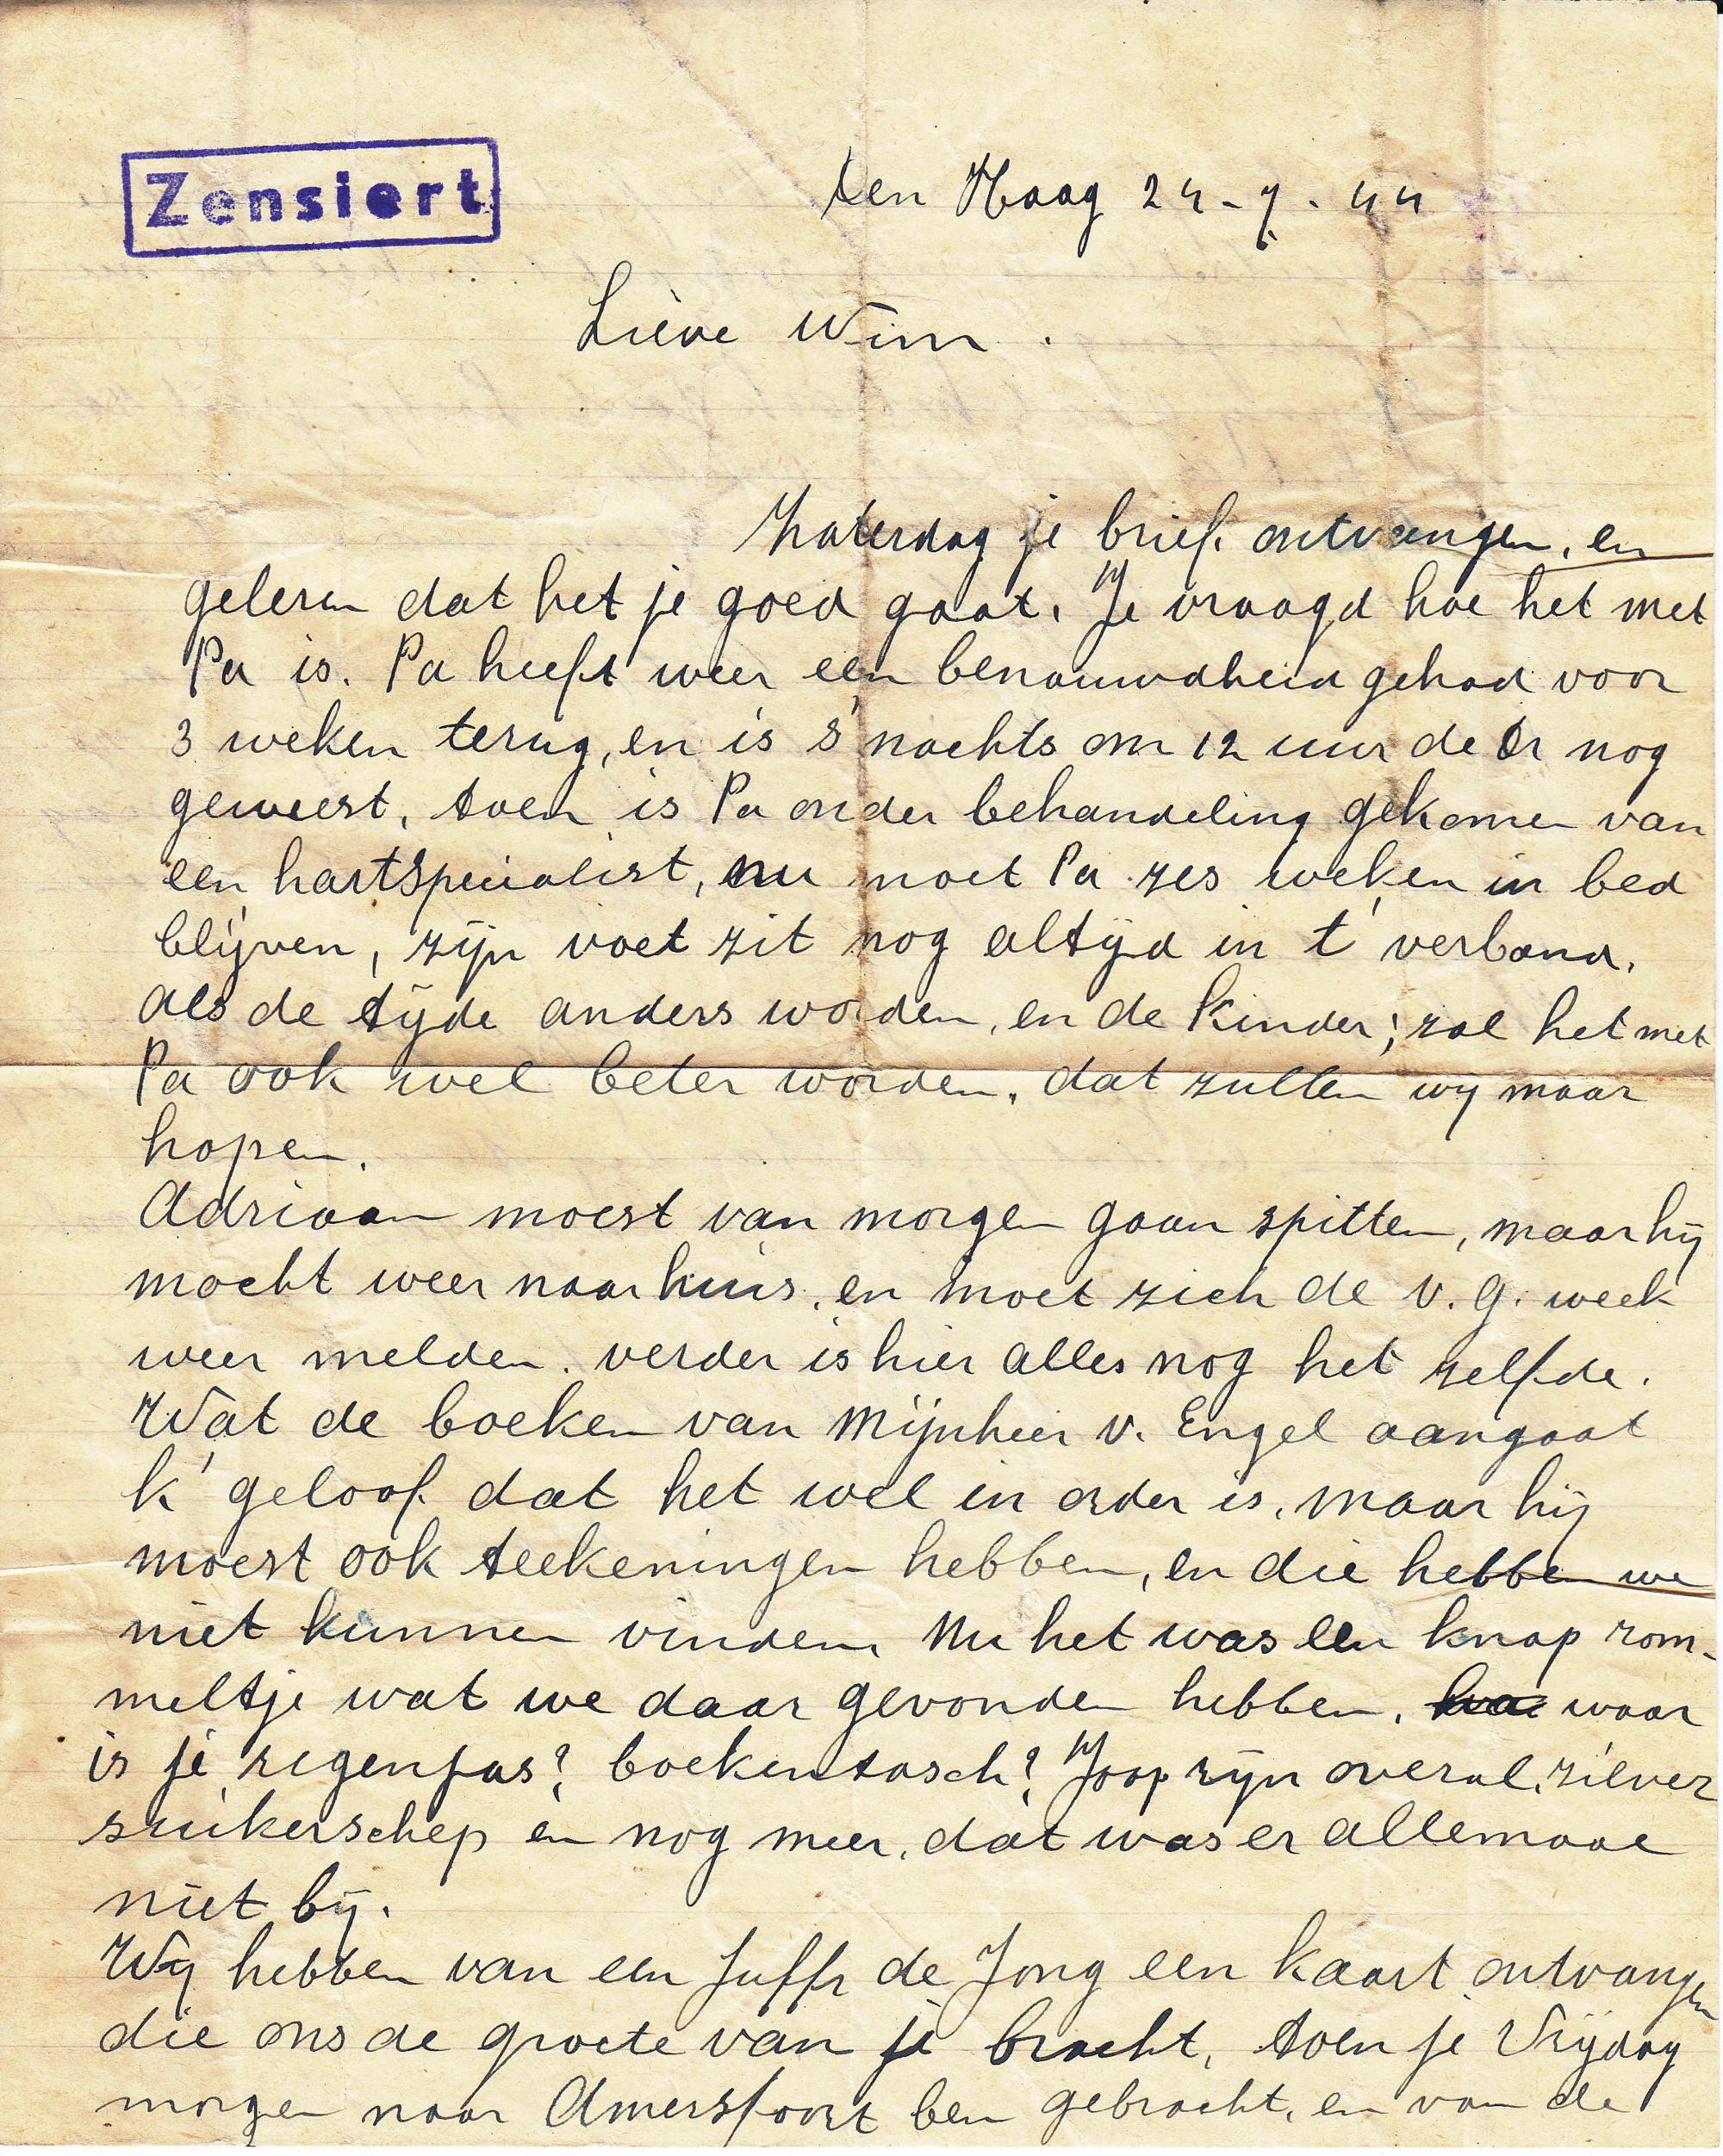 Zensiert
den Haag 24-7.44
Lieve Wim.
Zaterdag je brief ontvangen, en
gelezen dat het je goed gaat. Je vraagd hoe het met
Pa is. Pa heeft weer een benauwdheid gehad voor
3 weken terug, en is s' nachts om 12 uur de Dr nog
geweest, toen is Pa onder behandeling gekomen van
een hartspecialist, nu moet Pa zes weken in bed
blijven, zijn voet zit nog altijd in t' verband.
als de tijde anders worden, en de kinder; zal het met
Pa ook wel beter worden, dat zullen wij maar
hopen.
Adriaan moest van morgen gaan spitten, maar hij
mocht weer naar huis, en moet zich de v.g. week
weer melden. verder is hier alles nog het zelfde.
Wat de boeken van Mijnheer v. Engel aangaat
k' geloof dat het wel in order is, maar hij
moest ook teekeningen hebben, en die hebben we
niet kunnen vinden, Nu het was een knap rom-
meltje wat we daar gevonden hebben, waar
is je regenjas? boekentasch? Joop zijn overal, zilver
suikerschep en nog meer, dat was er allemaal
niet bij.
Wij hebben van een Juffr de Jong een kaart ontvangen
die ons de groete van je bracht, toen je Vrijdag
morgen naar Amersfoort ben gebracht, en van de